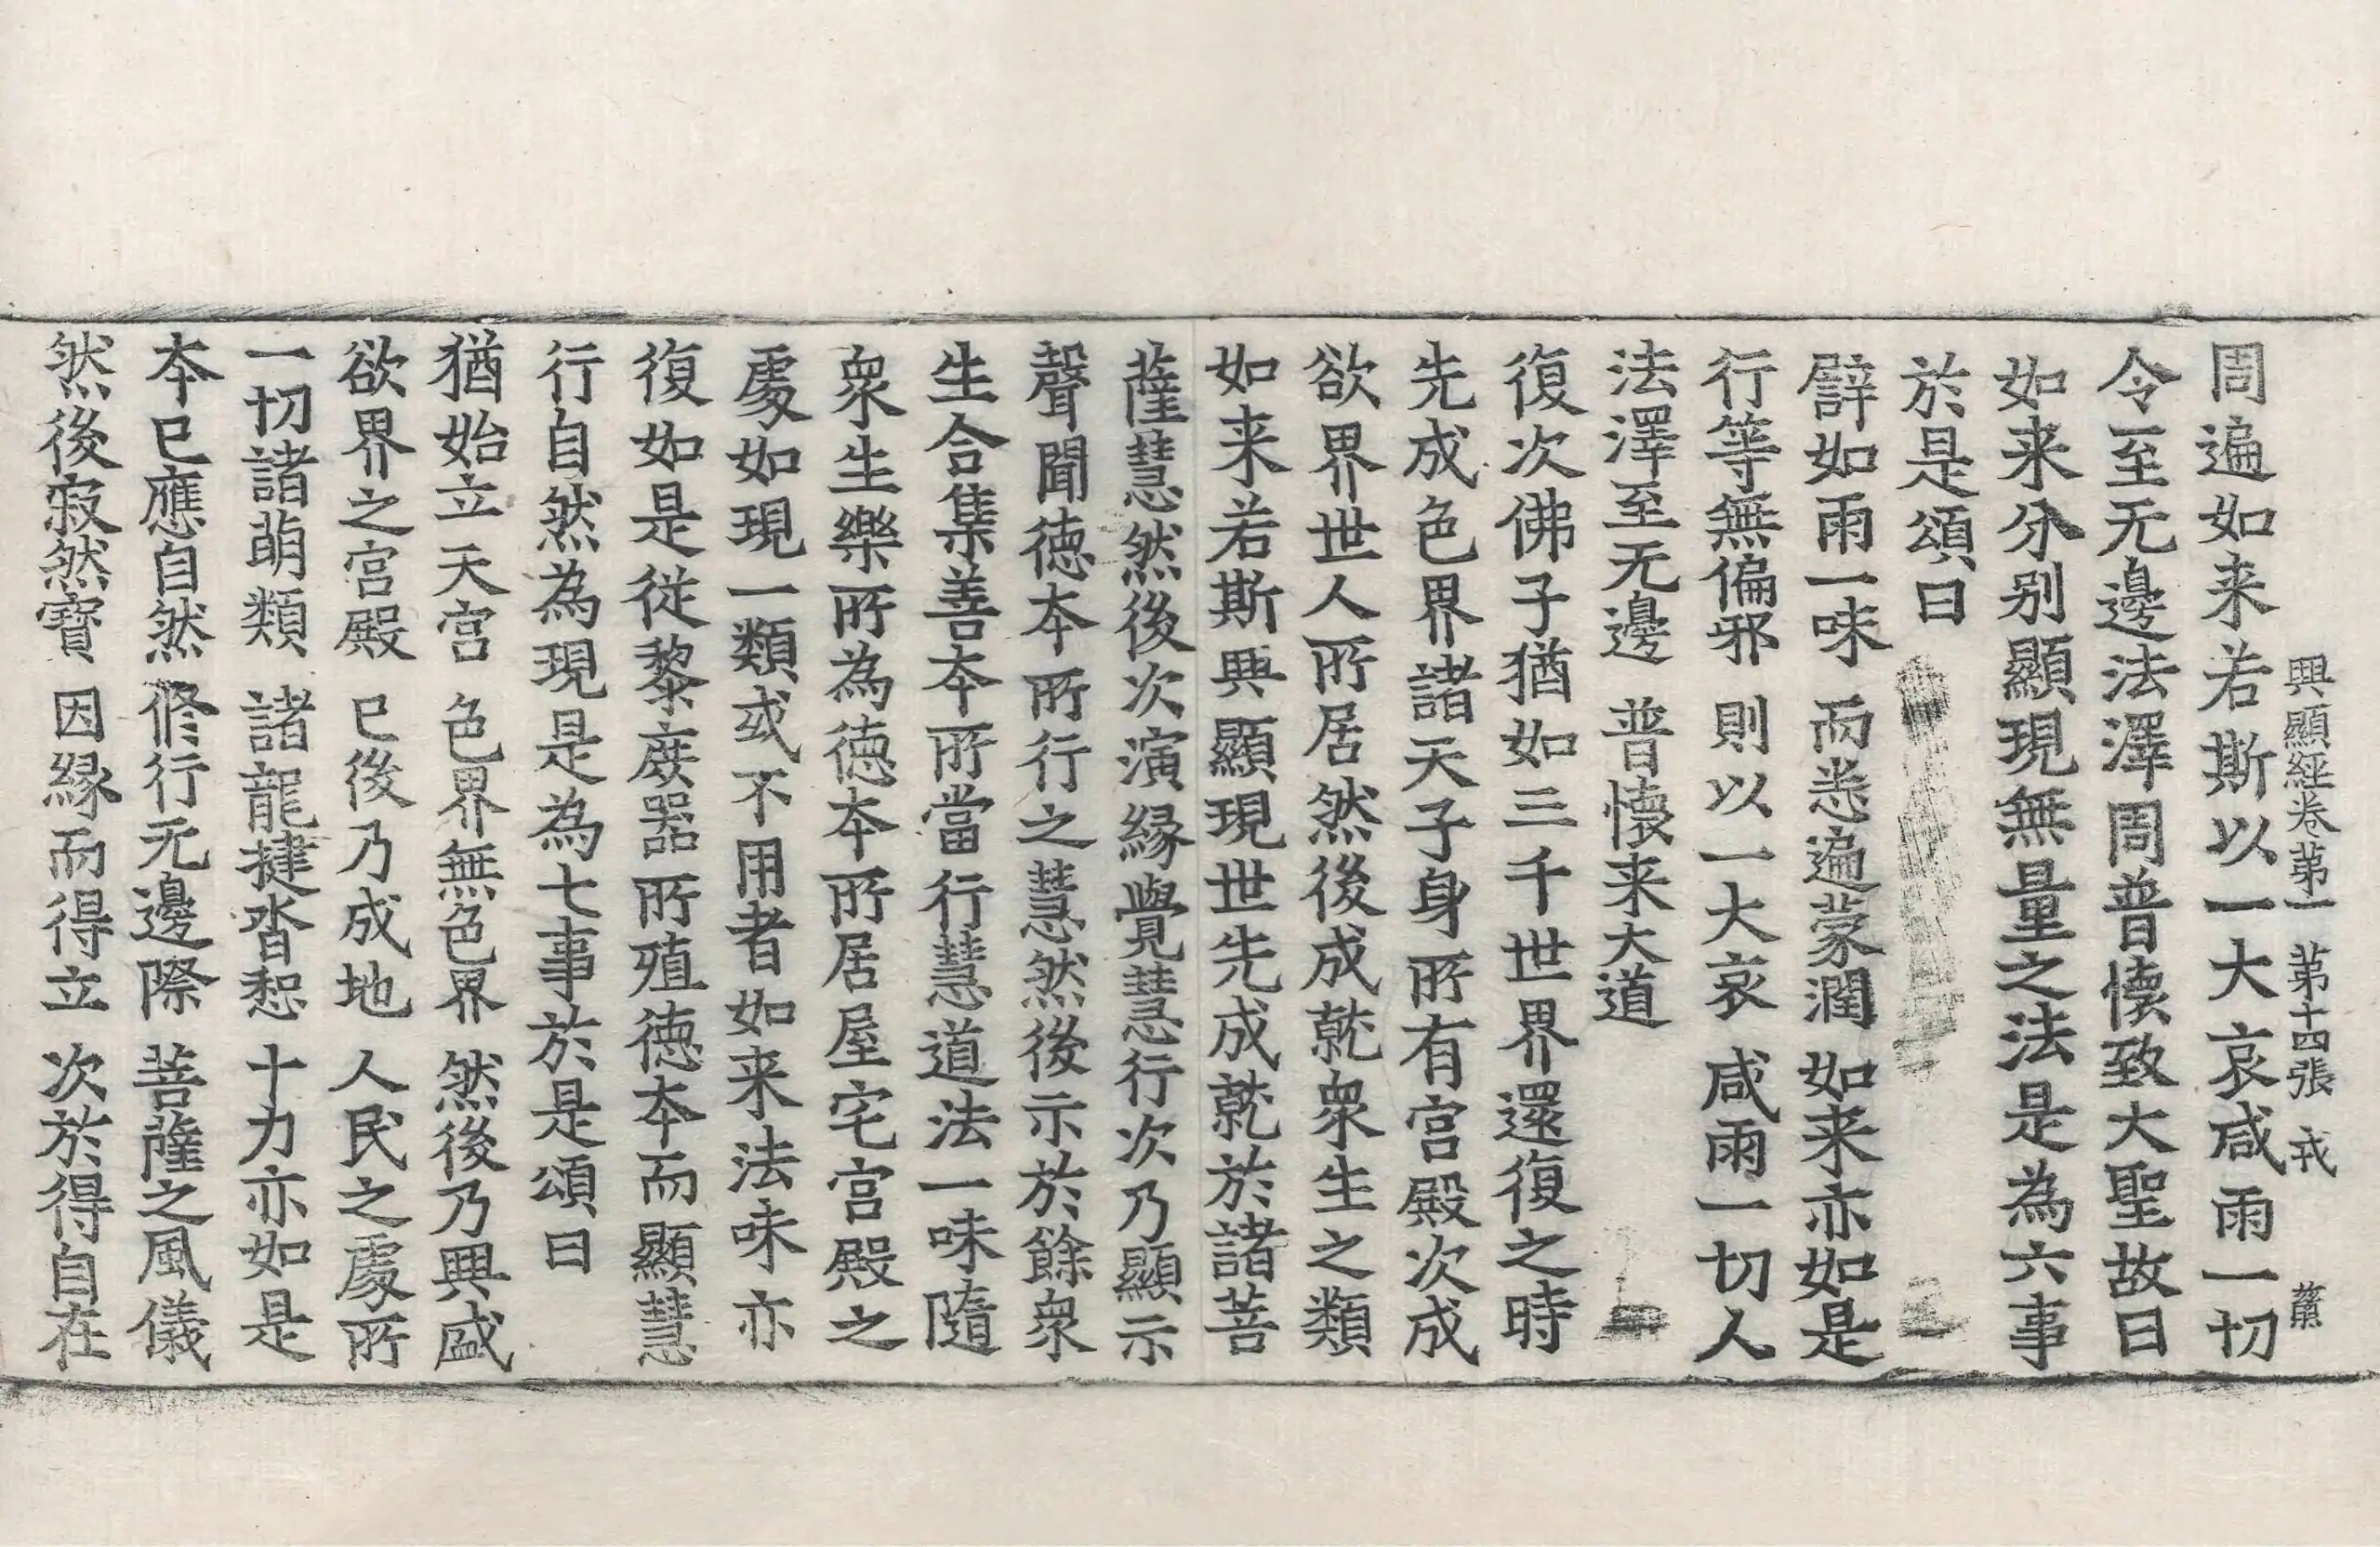 興顯經卷苐一 苐十四張 戎 蕭
周遍如来若斯以一大哀咸雨一切
令至无邊法澤周普懷致大聖故曰
如来分别顯現無量之法是為六事
於是頌曰
譬如雨一味 而悉遍蒙潤 如来亦如是
行等無偏邪 則以一大哀 咸雨一切人
法澤至无邊 普懷来大道
復次佛子猶如三千世界還復之時
先成色界諸天子身所有宮殿次成
欲界世人所居然後成就衆生之類
如来若斯興顯現世先成就於諸菩
薩慧然後次演緣覺慧行次乃顯示
聲聞德夲所行之慧然後示於餘衆
生合集善夲所當行慧道法一味隨
衆生樂所為德夲所居屋宅宮殿之
處如現一類或不用者如来法味亦
復如是從黎庶器所殖德夲而顯慧
行自然為現是為七事於是頌曰
猶始立天宮 色界無色界 然後乃興盛
欲界之宮殿 已後乃成地 人民之處所
一切諸萌類 諸龍揵沓惒 十力亦如是
夲已應自然 修行无邊際 菩薩之風儀
然後寂然寶 因緣而得立 次於得自在